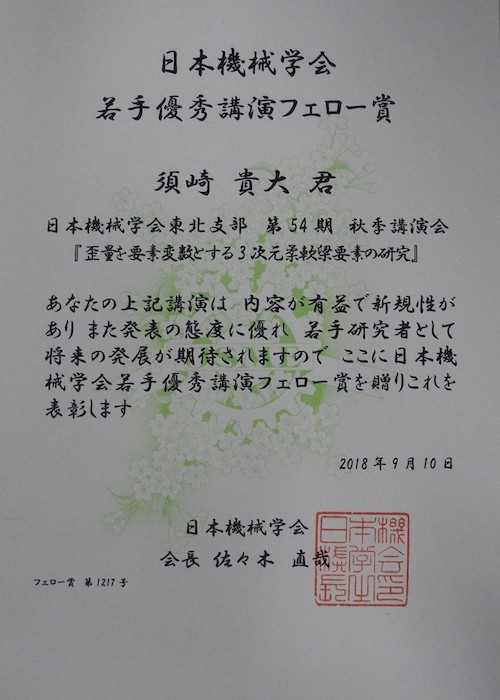 日本機械学会
若手優秀講演フェロー賞
須崎 貴大 君
日本機械学会東北支部 第54期 秋季講演会
『歪量を要素変数とする3次元柔軟梁要素の研究』
あなたの上記講演は 内容が有益で新規性が
あり また発表の態度に優れ 若手研究者として
将来の発展が期待されますので ここに日本機
械学会若手優秀講演フェロー賞を贈りこれを
表彰します
2018年9月10日
日本機械学会
会長 佐々木 直哉
フェロー賞 第1217号